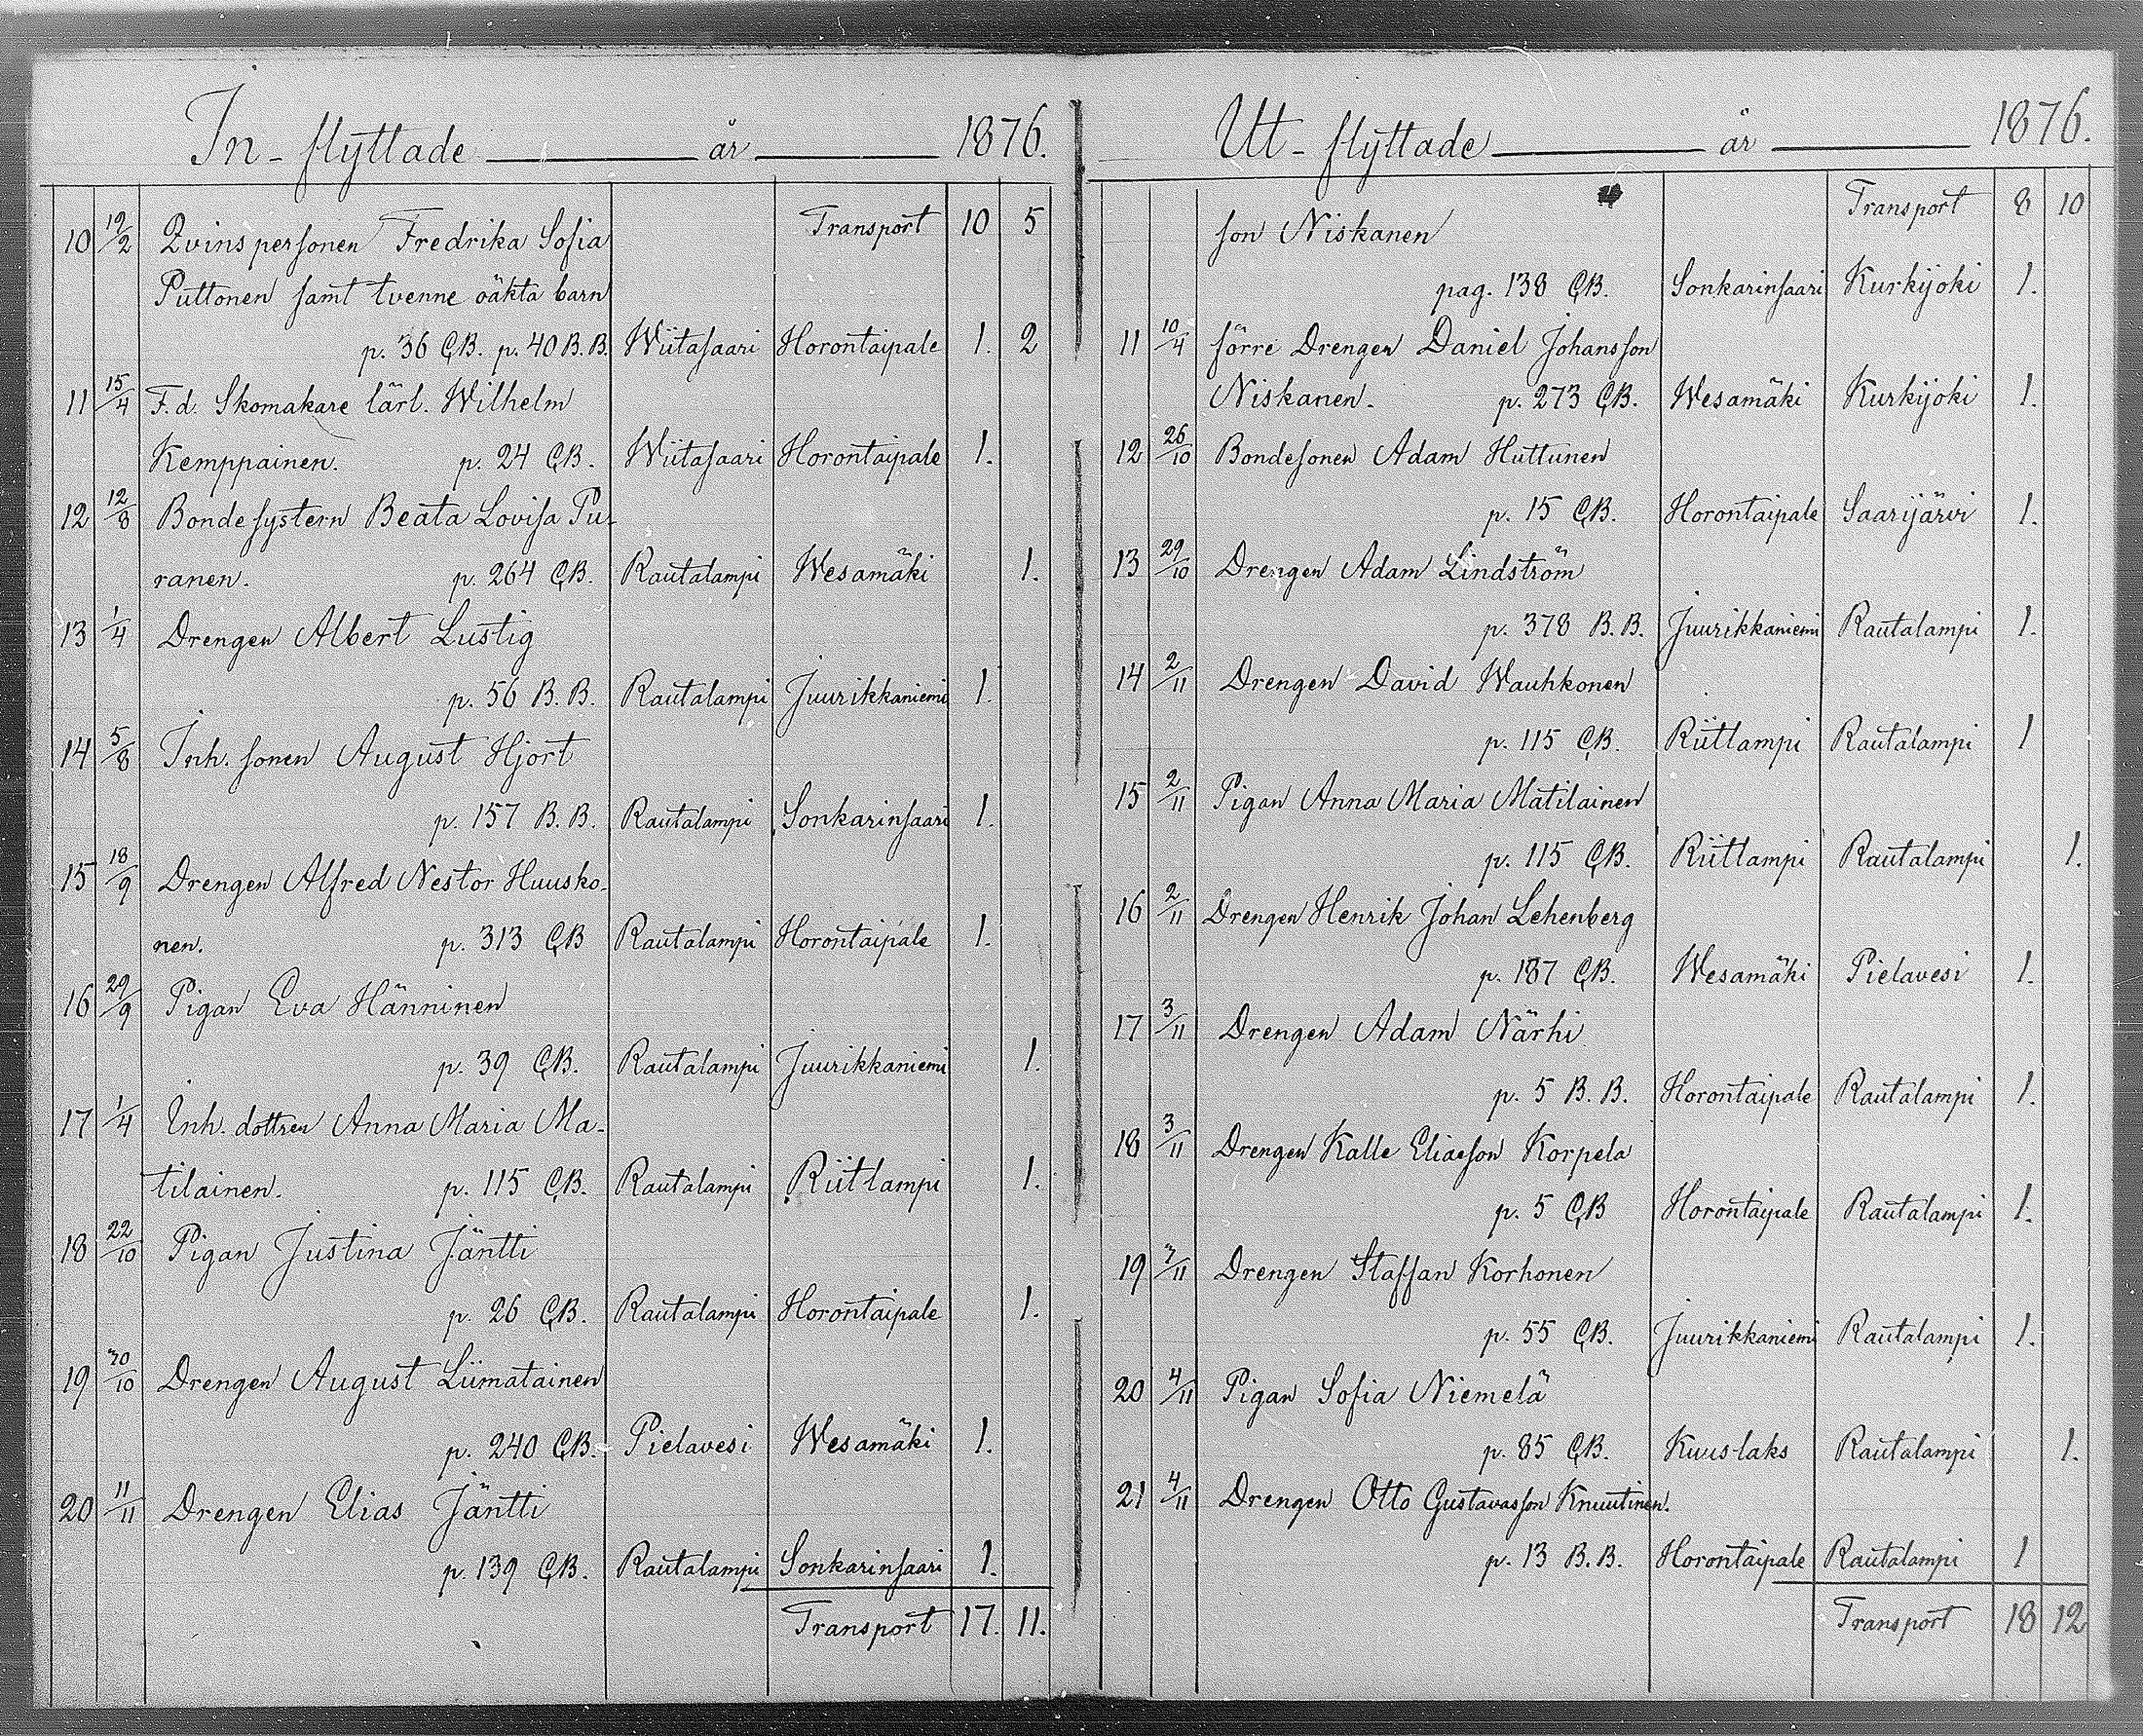 In-flyttade år 1876.
Transport 10 5
10 19/2 Qvinspersonen Fredrika Sofia
Puttonen samt tvenne oäkta barn
p. 36 CB. p. 40 B.B. Wiitasaari Horontaipale 1. 2
11 15/4 F.d. Skomakare lärl. Wilhelm
Kemppainen. p. 24 CB. Wiitasaari Horontaipale 1.
12 12/8 Bondesystern Beata Lovisa Pu-
ranen. p. 264 CB. Rautalampi Wesamäki 1.
13 1/4 Drengen Albert Lustig
p. 56 B.B. Rautalampi Juurikkaniemi 1.
14 5/8 Inh. sonen August Hjort
p. 157 B.B. Rautalampi Sonkarinsaari 1.
15 18/9 Drengen Alfred Nestor Huusko-
nen. p. 313 CB Rautalampi Horontaipale 1.
16 29/9 Pigan Eva Hänninen
p. 39 CB. Rautalampi Juurikkaniemi 1.
17 1/4 Inh. dottren Anna Maria Ma-
tilainen. p. 115 CB. Rautalampi Riitlampi 1.
18 22/10 Pigan Justina Jäntti
p. 26 CB. Rautalampi Horontaipale 1.
19 30/10 Drengen August Liimatainen
p. 240 CB. Pielavesi Wesamäki 1.
20 11/11 Drengen Elias Jäntti
p. 139 CB. Rautalampi Sonkarinsaari 1.
Transport 17. 11.
Ut-flyttade år 1876.
Transport 8 10
son Niskanen
pag. 138 CB. Sonkarinsaari Kurkijoki 1.
11 10/4 förre Drengen Daniel Johansson
Niskanen. p. 273 CB. Wesamäki Kurkijoki 1.
12 26/10 Bondesonen Adam Huttunen
p. 15 CB. Horontaipale Saarijärvi 1.
13 29/10 Drengen Adam Lindström
p. 378 B.B. Juurikkaniemi Rautalampi 1.
14 2/11 Drengen David Wauhkonen
p. 115 CB. Riitlampi Rautalampi 1
15 2/11 Pigan Anna Maria Matilainen
p. 115 CB. Riitlampi Rautalampi 1.
16 2/11 Drengen Henrik Johan Lehenberg
p. 187 CB. Wesamäki Pielavesi 1.
17 3/11 Drengen Adam Närhi
p. 5 B.B. Horontaipale Rautalampi 1.
18 3/11 Drengen Kalle Eliasson Korpela
p. 5 CB Horontaipale Rautalampi 1.
19 3/11 Drengen Staffan Korhonen
p. 55 CB. Juurikkaniemi Rautalampi 1.
20 4/11 Pigan Sofia Niemelä
p. 85 CB. Kuuslaks Rautalampi 1.
21 4/11 Drengen Otto Gustavasson Knuutinen.
p. 13 B.B. Horontaipale Rautalampi 1
Transport 18 12